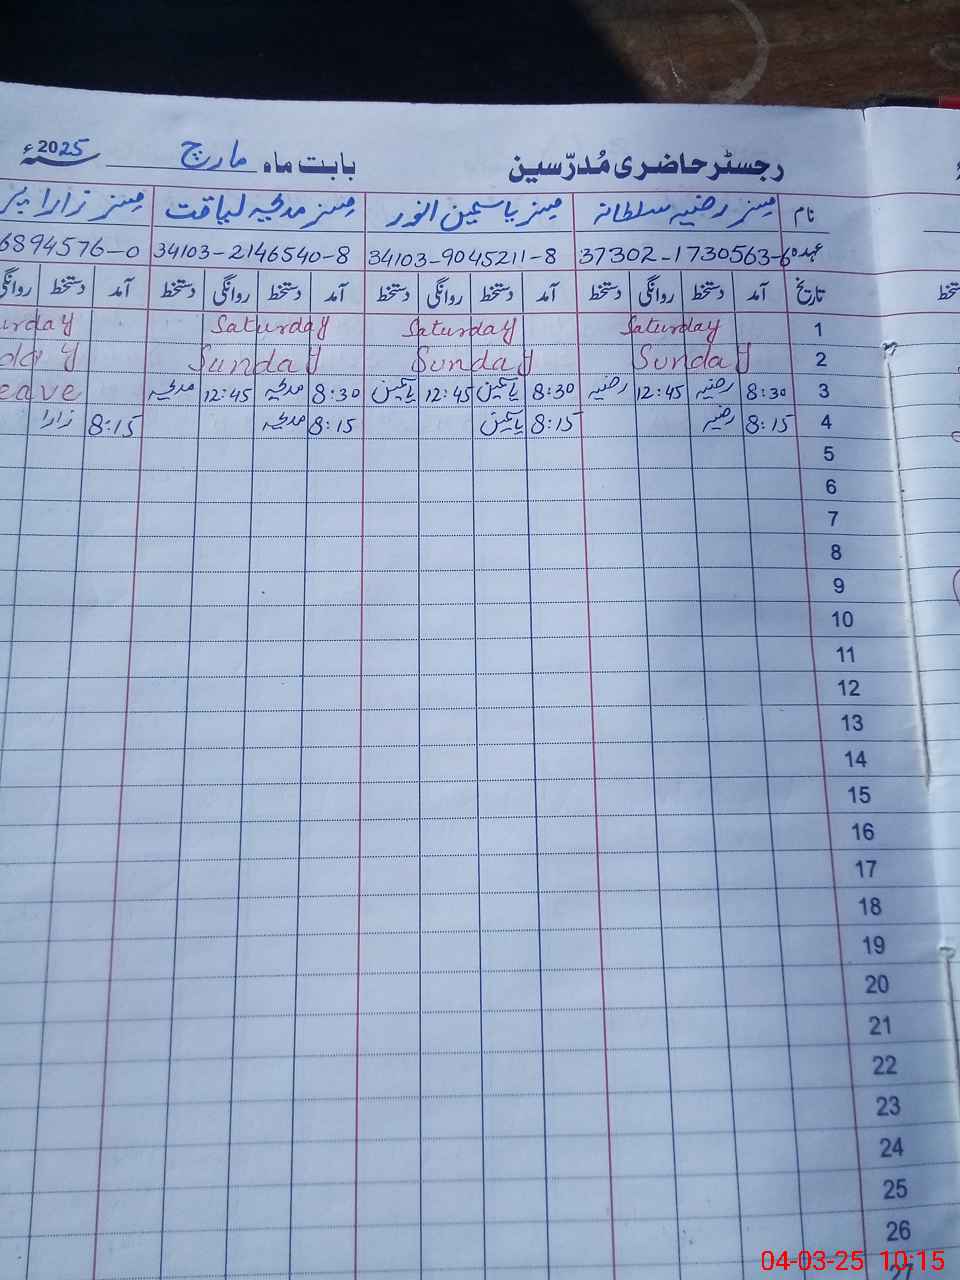 رجسٹر حاضری مُدرّسین بابت ماہ مارچ 2025ء
نام مسز رضیہ سلطانہ مسز یاسمین انور مسز مدیحہ لیاقت مسز زارا
عہدہ 37302-1730563-6 34103-9045211-8 34103-2146540-8 6894576-0
تاریخ آمد دستخط روانگی دستخط آمد دستخط روانگی دستخط آمد دستخط روانگی دستخط آمد دستخط روانگی
1 Saturday Saturday Saturday urday
2 Sunday Sunday Sunday day
3 8:30 رضیہ 12:45 رضیہ 8:30 یاسمین 12:45 یاسمین 8:30 مدیحہ 12:45 مدیحہ eave
4 8:15 رضیہ 8:15 یاسمین 8:15 مدیحہ 8:15 زارا
5
6
7
8
9
10
11
12
13
14
15
16
17
18
19
20
21
22
23
24
25
26
27
04-03-25 10:15